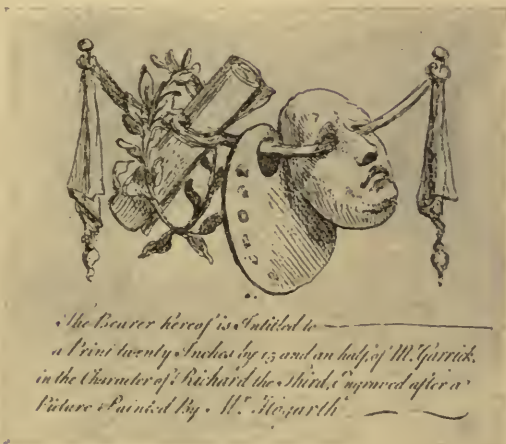 The Bearer hereof is Intitled to
a Print twenty Inches by 15 and an half, of Mr. Garrick
in the Character of Richard the third, Engraved after a
Picture Painted By Mr. Hogarth